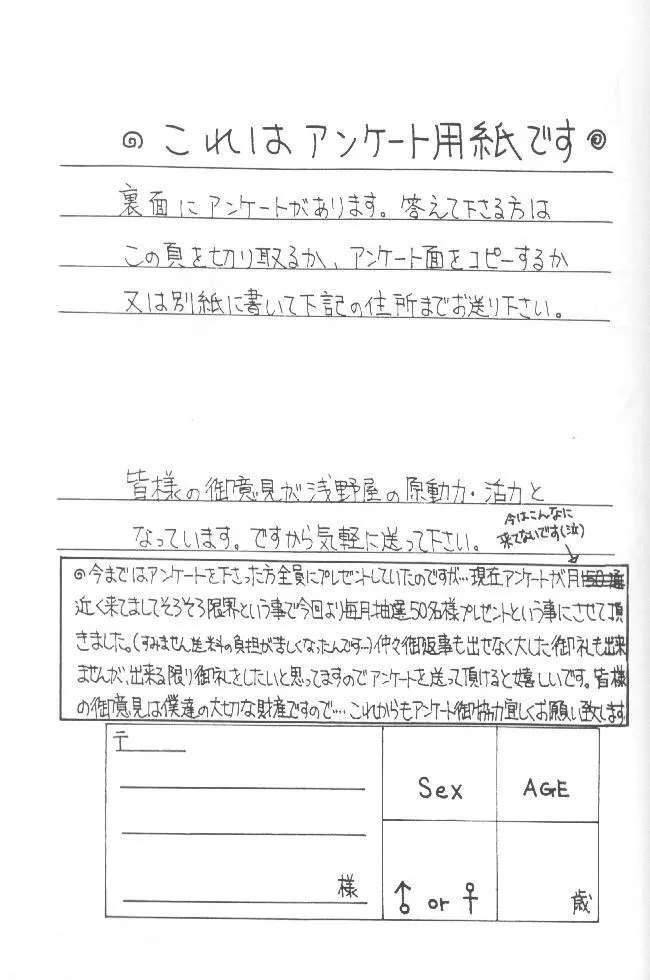 これはアンケート用紙です
裏面にアンケートがあります。答えて下さる方は
この頁を切り取るか、アンケート面をコピーするか
又は別紙に書いて下記の住所までお送り下さい。
皆様の御意見が浅野屋の原動力・活力と
なっています。ですから気軽に送って下さい。
今はこんなに
来てないです(泣)
◎今まではアンケートを下さった方全員にプレゼントしていたのですが…現在アンケートが月150通
近く来てましてそろそろ限界という事で今回より毎月抽選50名様プレゼントという事にさせて頂
きました。(すみません送料の負担が苦しくなったんです…)仲々御返事も出せなく大した御礼も出来
ませんが、出来る限り御礼をしたいと思ってますのでアンケートを送って頂けると嬉しいです。皆様
の御意見は僕達の大切な財産ですので…これからもアンケート御協力宜しくお願い致します
〒
様
Sex
AGE
♂ or ♀
歳